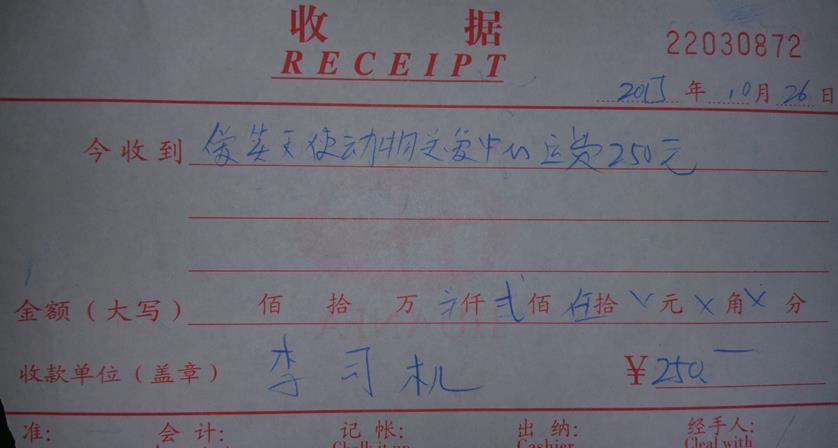 收 据
RECEIPT
22030872
年 10 月 26 日
今收到 爱笑天使动物关爱中心 运费250元
金额（大写） 佰 拾 万 仟 贰 佰 伍 拾 元 X 角 X 分
收款单位（盖章） 李司机 ¥ 250.—
准: 会 计: 记 帐: 出 纳: 经手人:
Chalk it up Cashier Cleal with